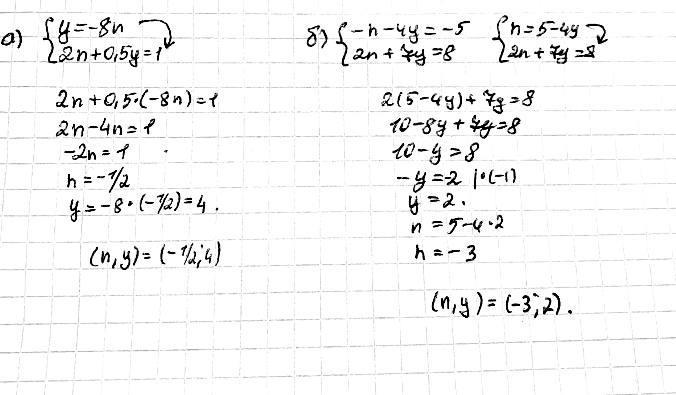 а) { y=-8n
2n+0,5y=1
2n+0,5·(-8n)=1
2n-4n=1
-2n=1
n=-1/2
y=-8·(-1/2)=4.
(n,y)=(-1/2;4)
б) { -n-4y=-5
2n+7y=8
{ n=5-4y
2n+7y=8
2(5-4y)+7y=8
10-8y+7y=8
10-y=8
-y=-2 |·(-1)
y=2.
n=5-4·2
n=-3
(n,y)=(-3;2).